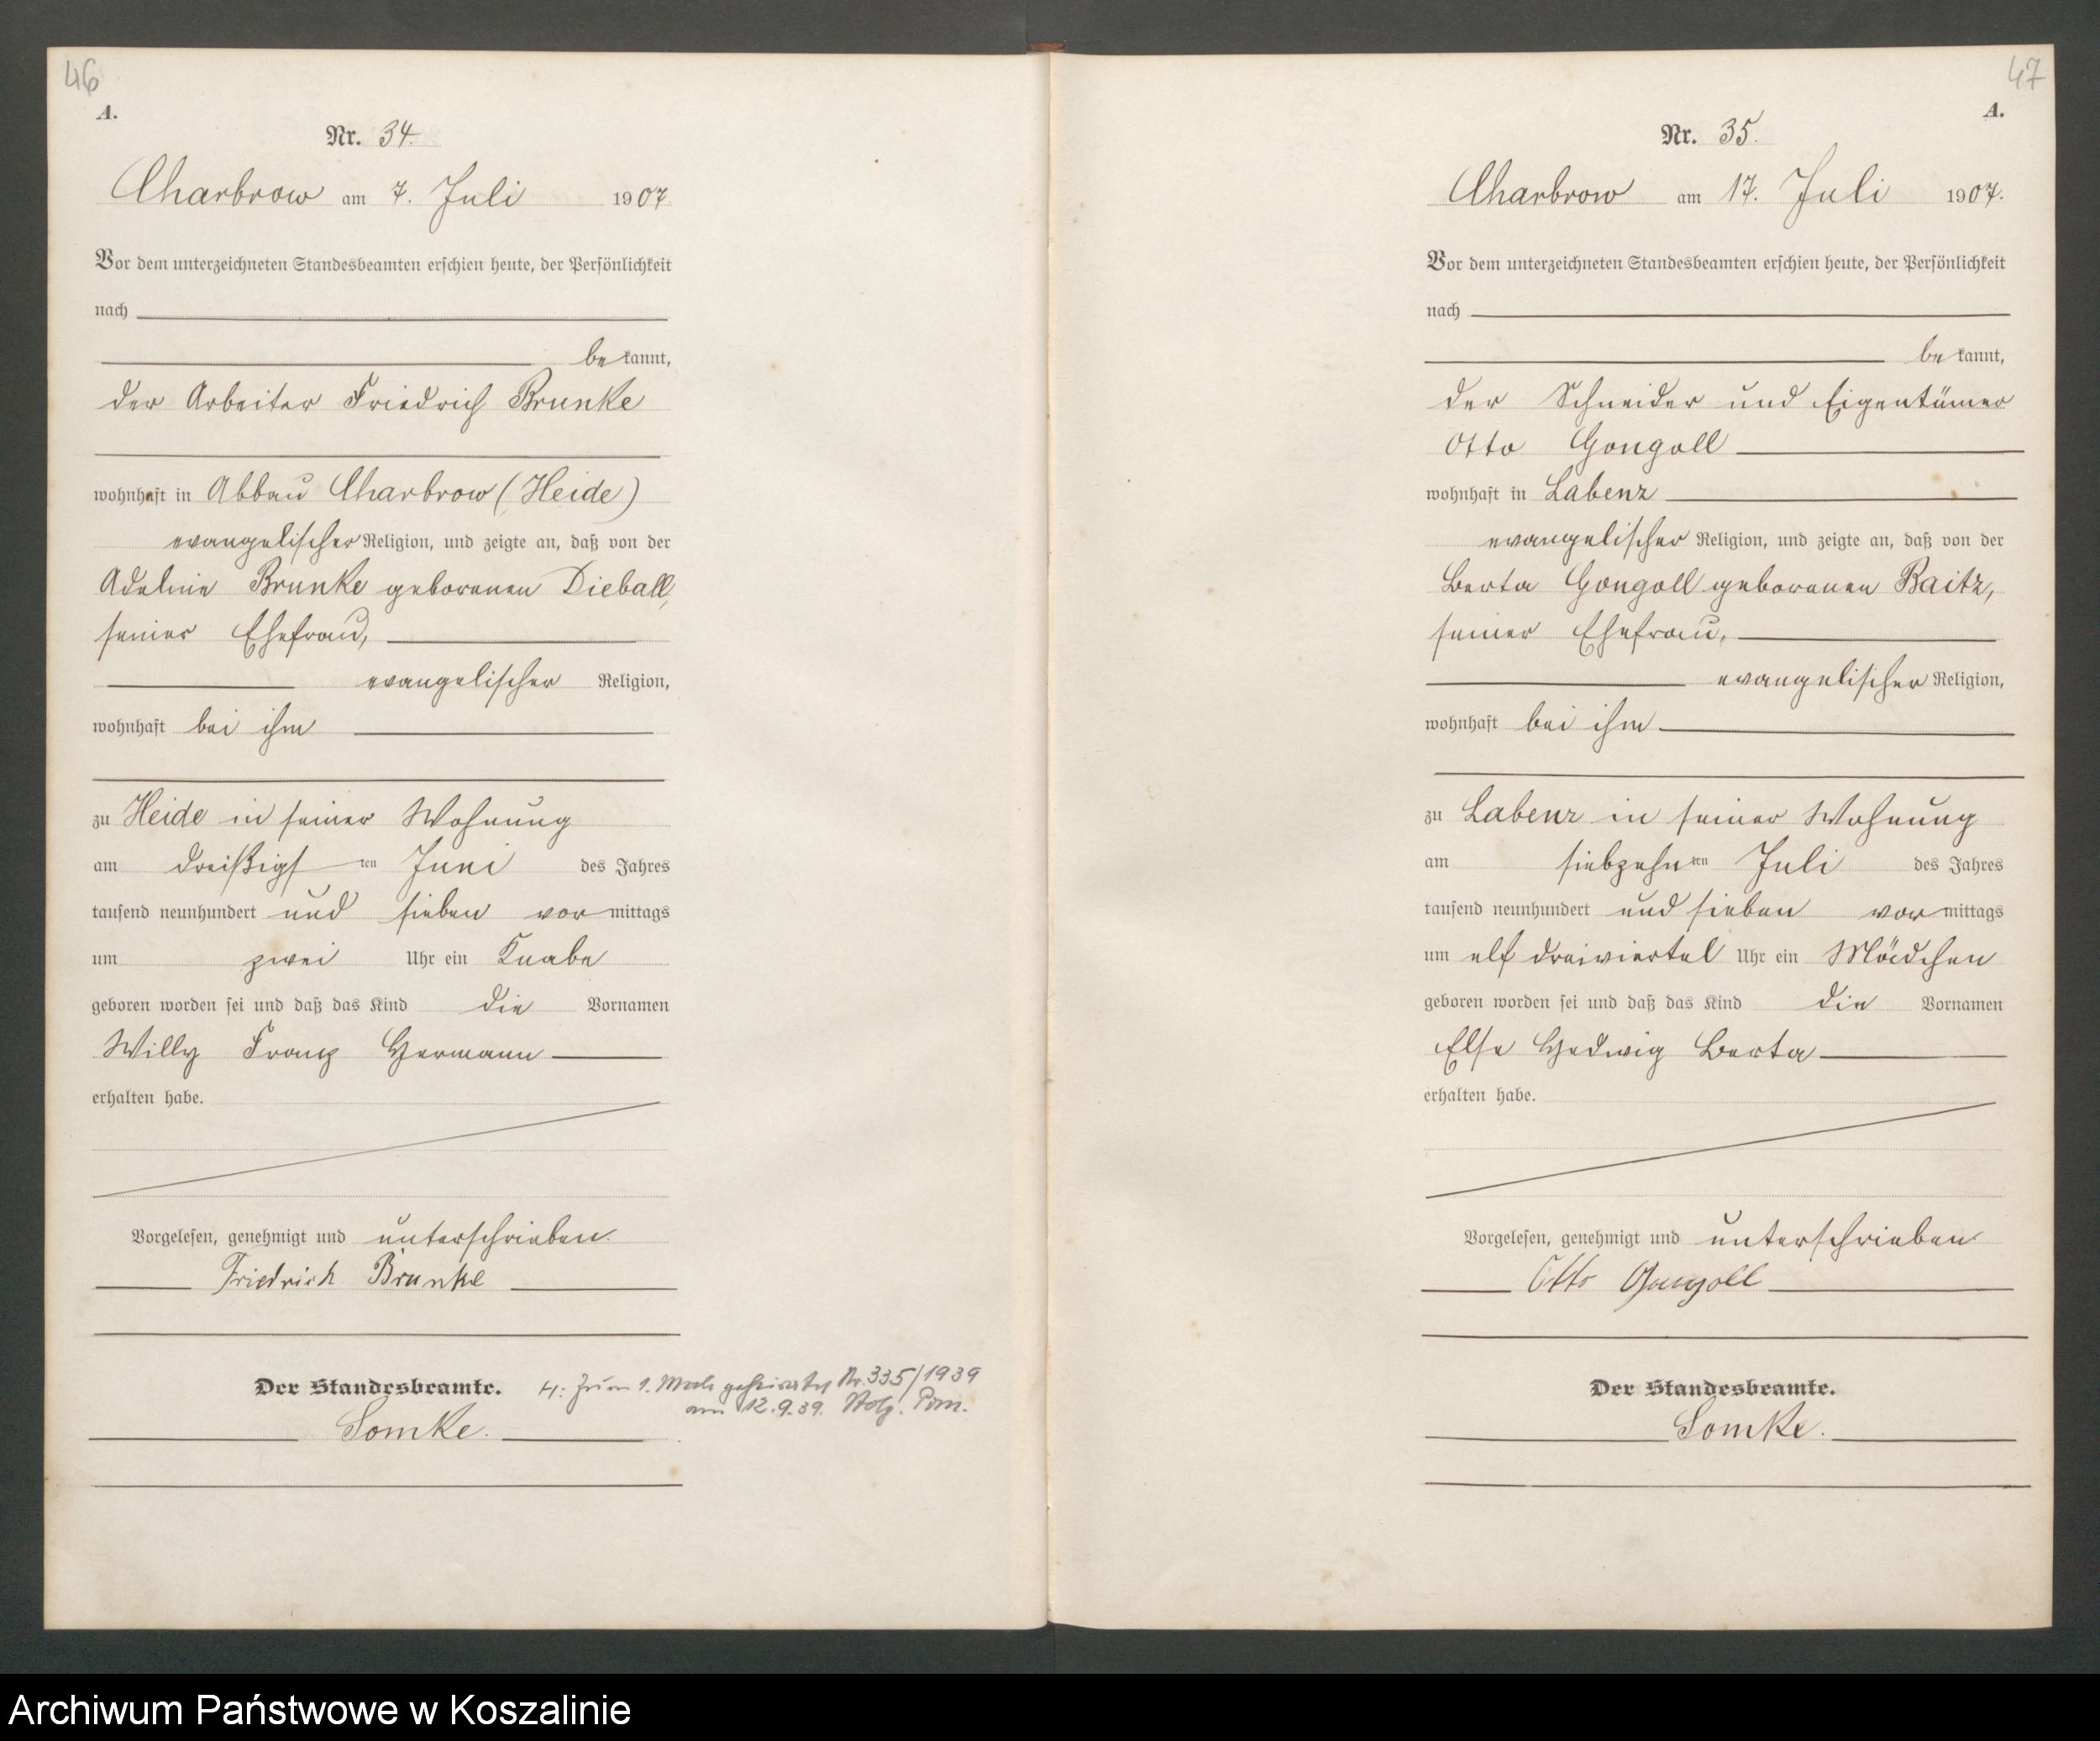 46
A.
Nr. 34.
Charbrow am 7. Juli 1907
Vor dem unterzeichneten Standesbeamten erschien heute, der Persönlichkeit
nach
bekannt,
der Arbeiter Friedrich Brunke
wohnhaft in Abbau Charbrow (Heide)
evangelischer Religion, und zeigte an, daß von der
Adeline Brunke geborenen Dieball,
seiner Ehefrau,
evangelischer Religion,
wohnhaft bei ihm
zu Heide in seiner Wohnung
am dreißigsten Juni des Jahres
tausend neunhundert und sieben vormittags
um zwei Uhr ein Knabe
geboren worden sei und daß das Kind die Vornamen
Willy Franz Hermann
erhalten habe.
Vorgelesen, genehmigt und unterschrieben.
Friedrich Brunke
Der Standesbeamte.
Lomke.
H: Zum 1. Mal geheiratet Nr. 335/1939
am 12.9.39. Stolp. Pom.
47
A.
Nr. 35.
Charbrow am 17. Juli 1907.
Vor dem unterzeichneten Standesbeamten erschien heute, der Persönlichkeit
nach
bekannt,
der Schneider und Eigentümer
Otto Gongoll
wohnhaft in Labenz
evangelischer Religion, und zeigte an, daß von der
Berta Gongoll geborenen Baitz,
seiner Ehefrau,
evangelischer Religion,
wohnhaft bei ihm
zu Labenz in seiner Wohnung
am siebzehnten Juli des Jahres
tausend neunhundert und sieben vormittags
um elf dreiviertel Uhr ein Mädchen
geboren worden sei und daß das Kind die Vornamen
Else Hedwig Berta
erhalten habe.
Vorgelesen, genehmigt und unterschrieben
Otto Gongoll
Der Standesbeamte.
Lomke.
Archiwum Państwowe w Koszalinie